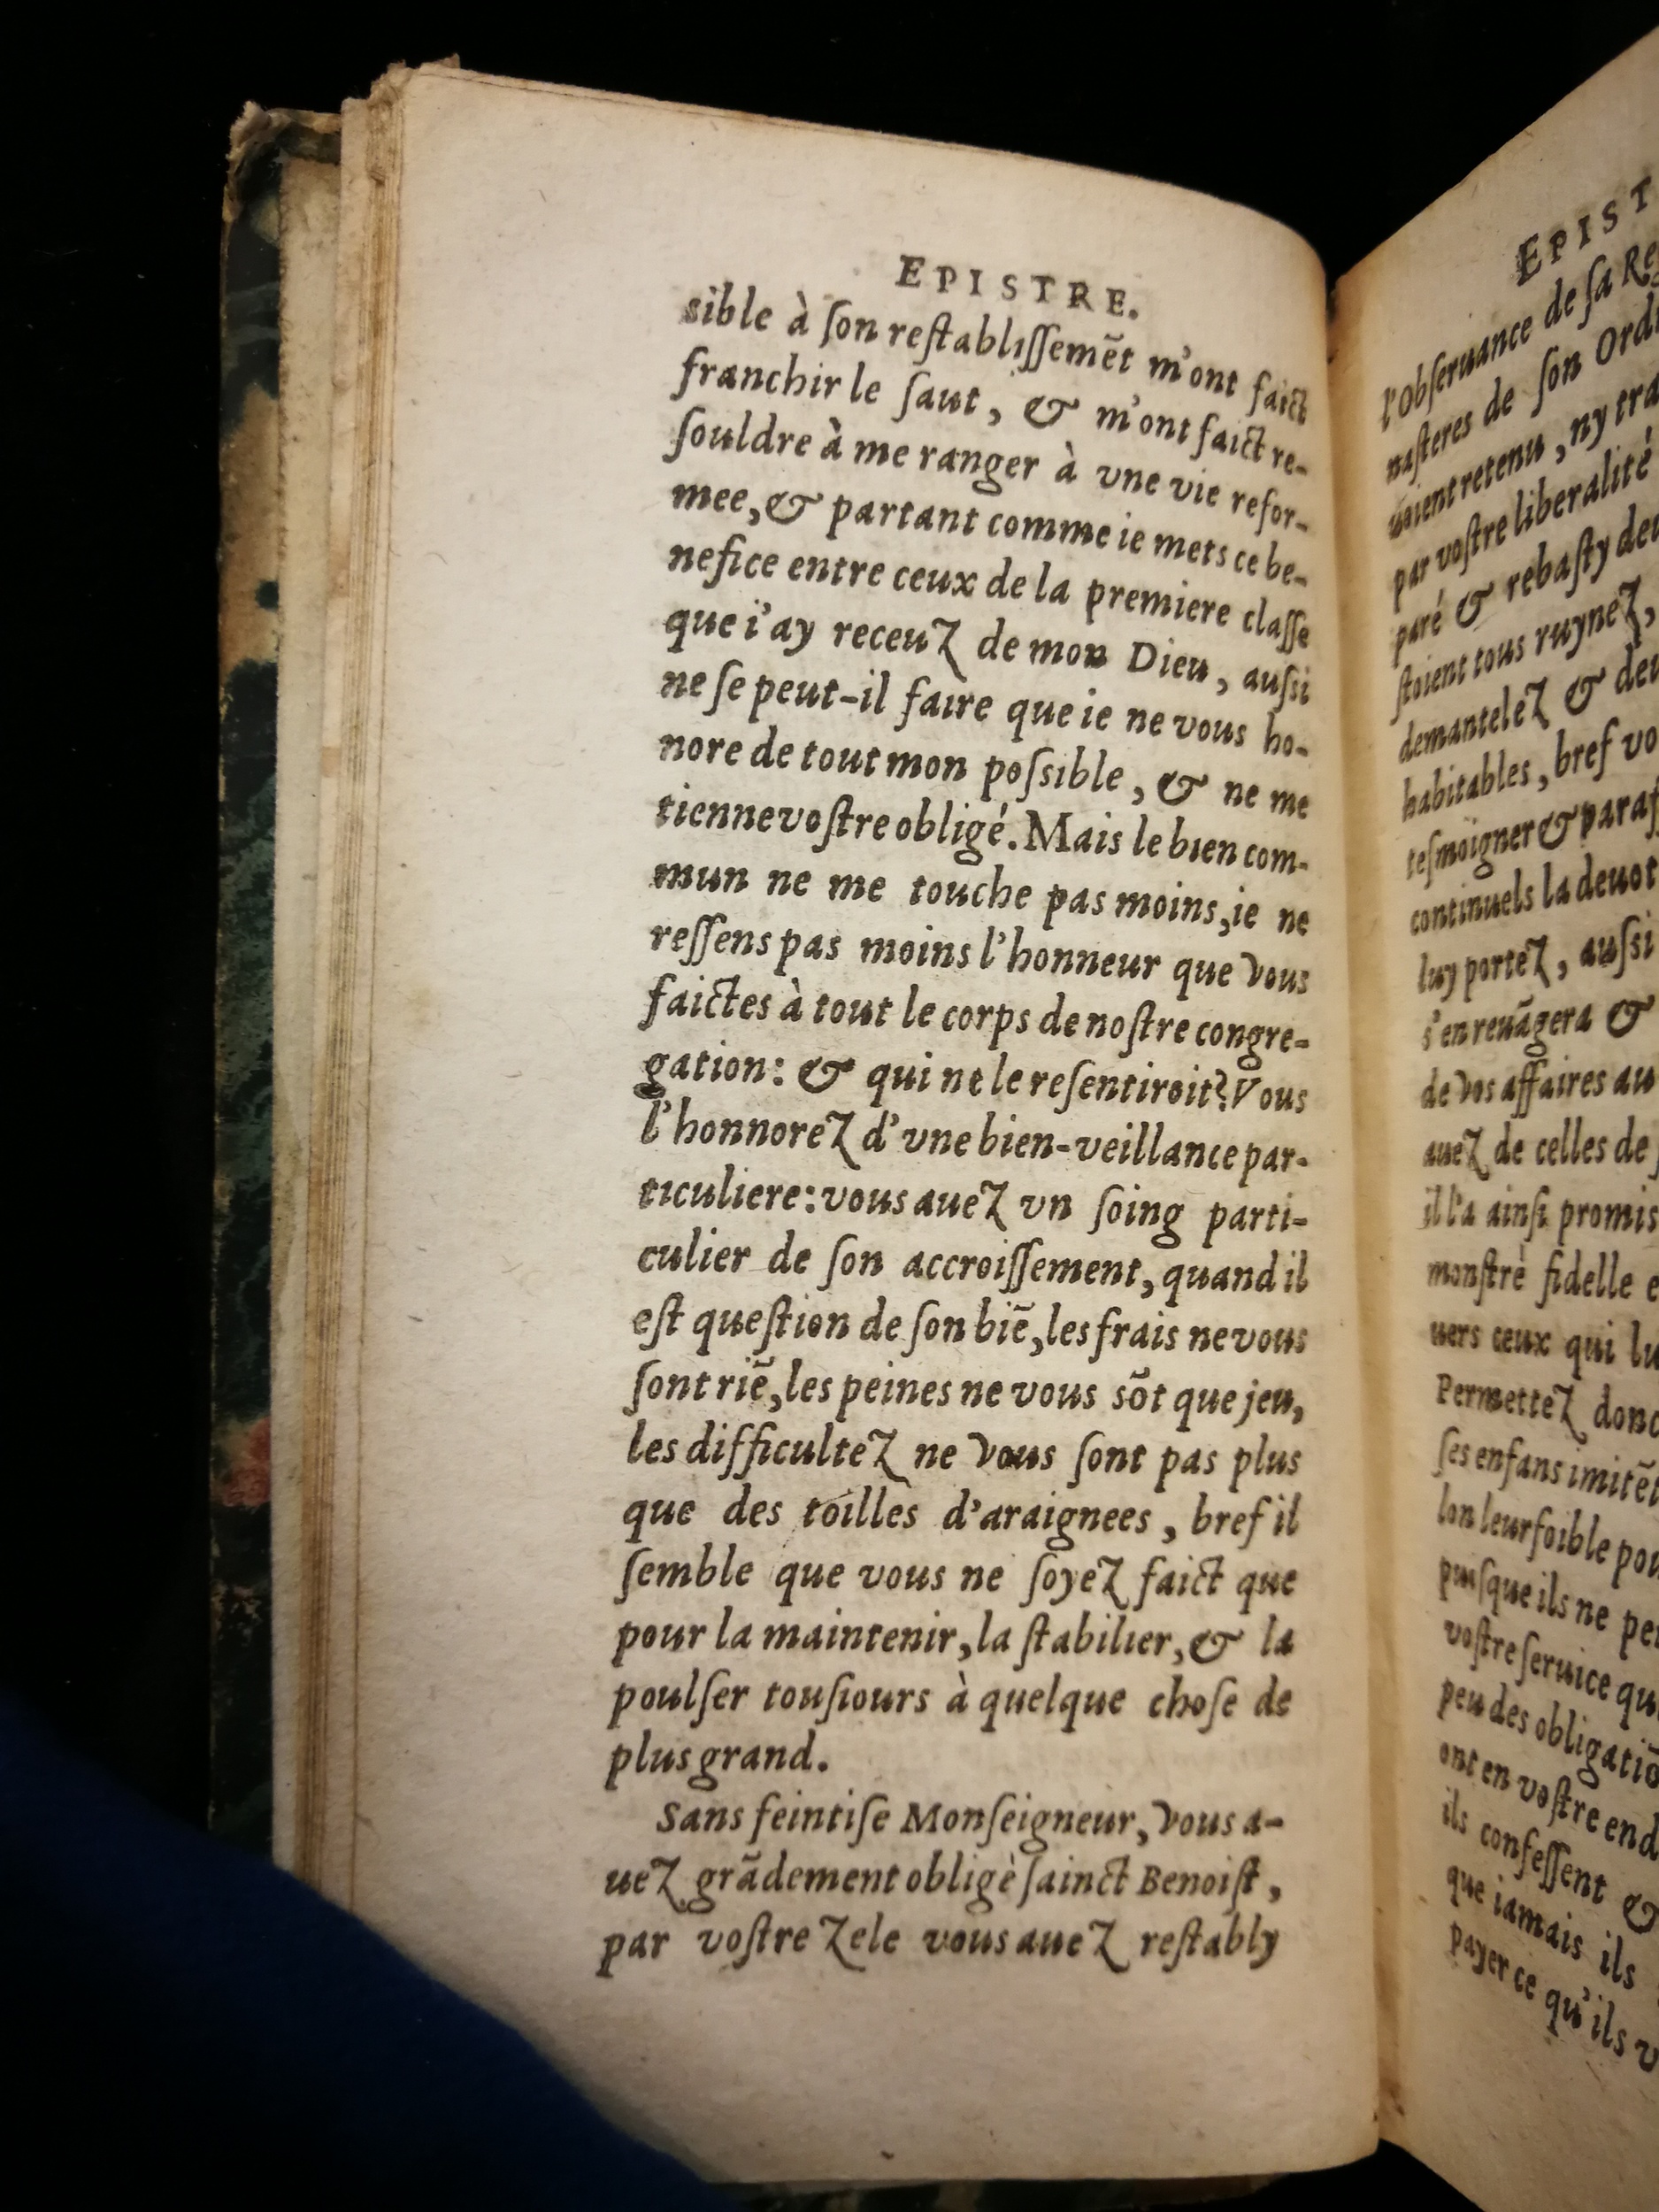 EPISTRE.
sible à ſon reſtabliſſemēt m'ont faict
franchir le ſaut, & m'ont faict re-
ſouldre à me ranger à vne vie refor-
mee, & partant comme ie mets ce be-
nefice entre ceux de la premiere claſſe
que i'ay receuz de mon Dieu, auſsi
ne ſe peut-il faire que ie ne vous ho-
nore de tout mon poſsible, & ne me
tienne voſtre obligé. Mais le bien com-
mun ne me touche pas moins, ie ne
reſſens pas moins l'honneur que vous
faictes à tout le corps de noſtre congre-
gation: & qui ne le reſentiroit? Vous
l'honnorez d'vne bien-veillance par-
ticuliere: vous auez vn ſoing parti-
culier de ſon accroiſſement, quand il
eſt queſtion de ſon biē, les frais ne vous
ſont riē, les peines ne vous sōt que jeu,
les difficultez ne vous ſont pas plus
que des toilles d'araignees, bref il
ſemble que vous ne ſoyez faict que
pour la maintenir, la ſtabilier, & la
poulſer touſiours à quelque choſe de
plus grand.
Sans feintiſe Monſeigneur, vous a-
uez grādement obligè ſainct Benoiſt,
par voſtre zele vous auez reſtably
EPIST
l'Obſeruance de ſa Re
naſteres de ſon Ord
uoient retenu, ny tra
par voſtre liberalité
paré & rebaſty de
ſtoient tous ruynez,
demantelez & de
habitables, bref vo
teſmoigner & paraſ
continuels la deuot
luy portez, auſsi
s'en reuāgera &
de vos affaires au
auez de celles de
il l'a ainſi promis
monſtré fidelle e
uers ceux qui lu
Permettez donc
ſes enfans imitēt
lon leur foible pou
puiſque ils ne pe
voſtre ſeruice qu
peu des obligatiō
ont en voſtre end
ils confeſſent &
que iamais ils
payer ce qu'ils v